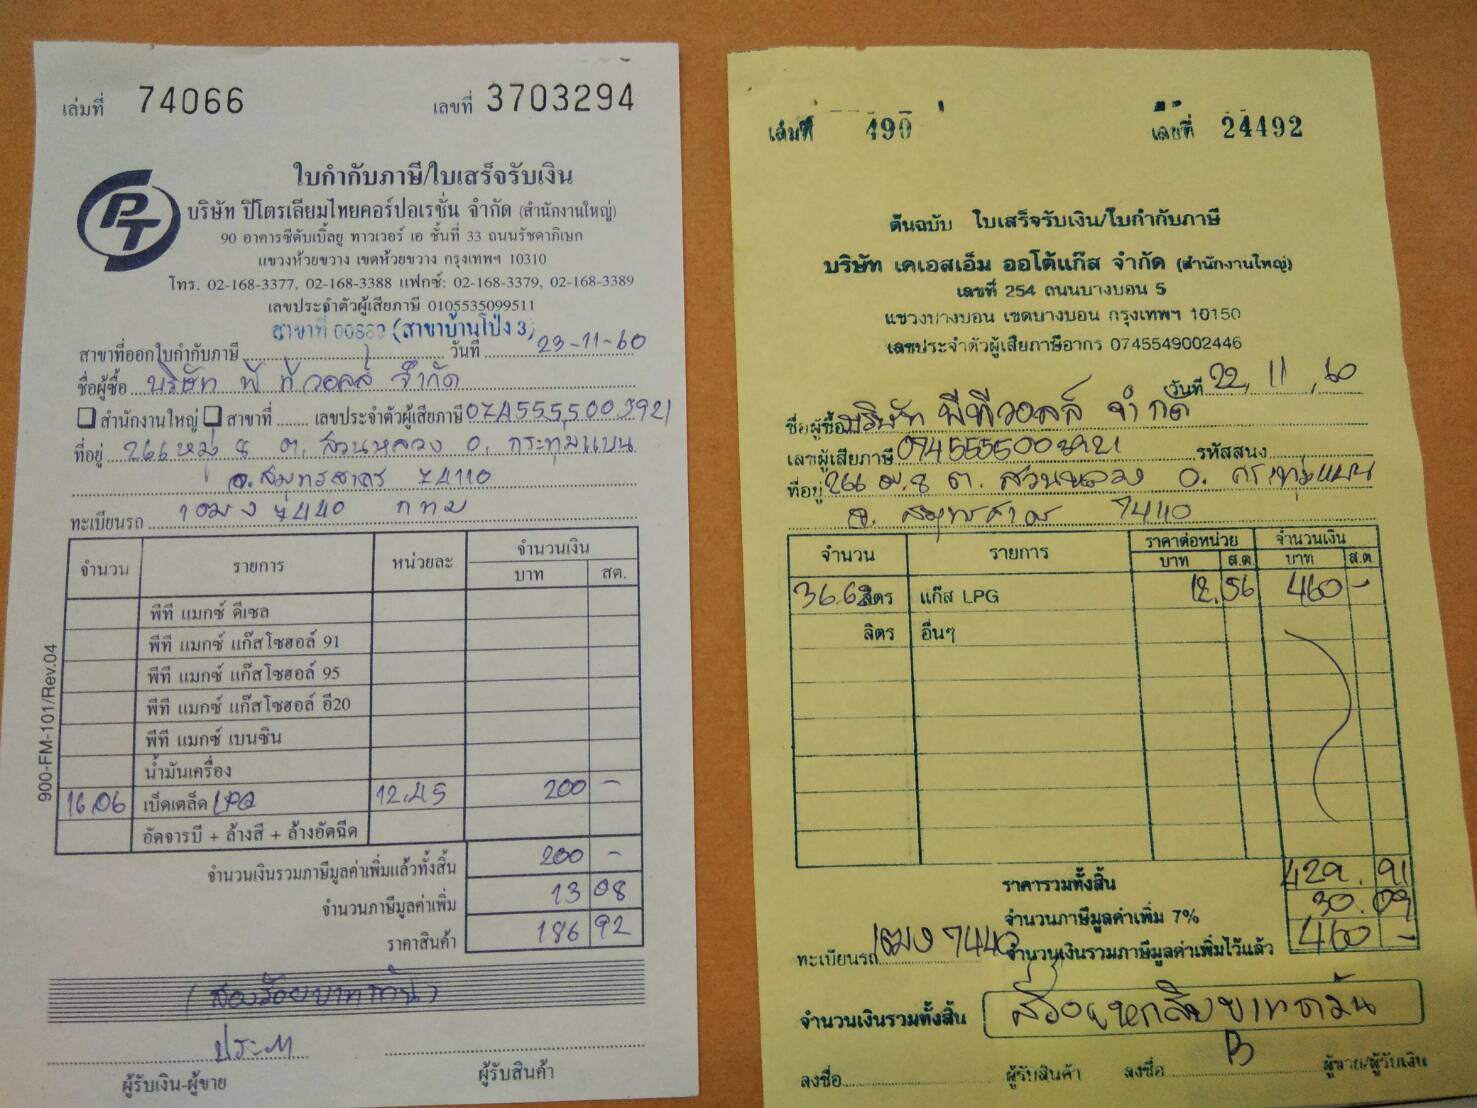 เล่มที่ 74066 เลขที่ 3703294
PT
ใบกำกับภาษี/ใบเสร็จรับเงิน
บริษัท ปิโตรเลียมไทยคอร์ปอเรชั่น จำกัด (สำนักงานใหญ่)
90 อาคารซีดับเบิ้ลยู ทาวเวอร์ เอ ชั้นที่ 33 ถนนรัชดาภิเษก
แขวงห้วยขวาง เขตห้วยขวาง กรุงเทพฯ 10310
โทร. 02-168-3377, 02-168-3388 แฟกซ์: 02-168-3379, 02-168-3389
เลขประจำตัวผู้เสียภาษี 0105535099511
สาขาที่ (สาขาบ้านโป่ง 3)
สาขาที่ออกใบกำกับภาษี วันที่ 23-11-60
ชื่อผู้ซื้อ บริษัท พี ทีวอลล์ จำกัด
สำนักงานใหญ่ สาขาที่ เลขประจำตัวผู้เสียภาษี 0745555003921
ที่อยู่ 266 หมู่ 8 ต. สวนหลวง อ. กระทุ่มแบน
จ.สมุทรสาคร 74110
ทะเบียนรถ 1ฒง 7440 กทม
จำนวน รายการ หน่วยละ จำนวนเงิน
บาท สต.
พีที แมกซ์ ดีเซล
พีที แมกซ์ แก๊สโซฮอล์ 91
พีที แมกซ์ แก๊สโซฮอล์ 95
พีที แมกซ์ แก๊สโซฮอล์ อี20
พีที แมกซ์ เบนซิน
น้ำมันเครื่อง
16.06 เบ็ดเตล็ด LPG 12.45 200 -
อัดจารบี + ล้างสี + ล้างอัดฉีด
จำนวนเงินรวมภาษีมูลค่าเพิ่มแล้วทั้งสิ้น 200 -
จำนวนภาษีมูลค่าเพิ่ม 13 08
ราคาสินค้า 186 92
(สองร้อยบาทถ้วน)
ผู้รับเงิน-ผู้ขาย ผู้รับสินค้า
900-FM-101/Rev.04
เล่มที่ 490 เลขที่ 24492
ต้นฉบับ ใบเสร็จรับเงิน/ใบกำกับภาษี
บริษัท เคเอสเอ็ม ออโต้แก๊ส จำกัด (สำนักงานใหญ่)
เลขที่ 254 ถนนบางบอน 5
แขวงบางบอน เขตบางบอน กรุงเทพฯ 10150
เลขประจำตัวผู้เสียภาษีอากร 0745549002446
วันที่ 22, 11, 60
ชื่อผู้ซื้อ บริษัท พีทีวอลล์ จำกัด
เลขผู้เสียภาษี 0745555003921 รหัสสนง.
ที่อยู่ 266 ม.8 ต. สวนหลวง อ. กระทุ่มแบน
จ. สมุทรสาคร 74110
จำนวน รายการ ราคาต่อหน่วย จำนวนเงิน
บาท ส.ต. บาท ส.ต.
36.62 ลิตร แก๊ส LPG 12.56 460 -
ลิตร อื่นๆ
ราคารวมทั้งสิ้น 429.91
จำนวนภาษีมูลค่าเพิ่ม 7% 30.09
ทะเบียนรถ 1ฒง 7440 จำนวนเงินรวมภาษีมูลค่าเพิ่มไว้แล้ว 460 -
จำนวนเงินรวมทั้งสิ้น สี่ร้อยหกสิบบาทถ้วน
ลงชื่อ ผู้รับสินค้า ลงชื่อ ผู้ขาย/ผู้รับเงิน